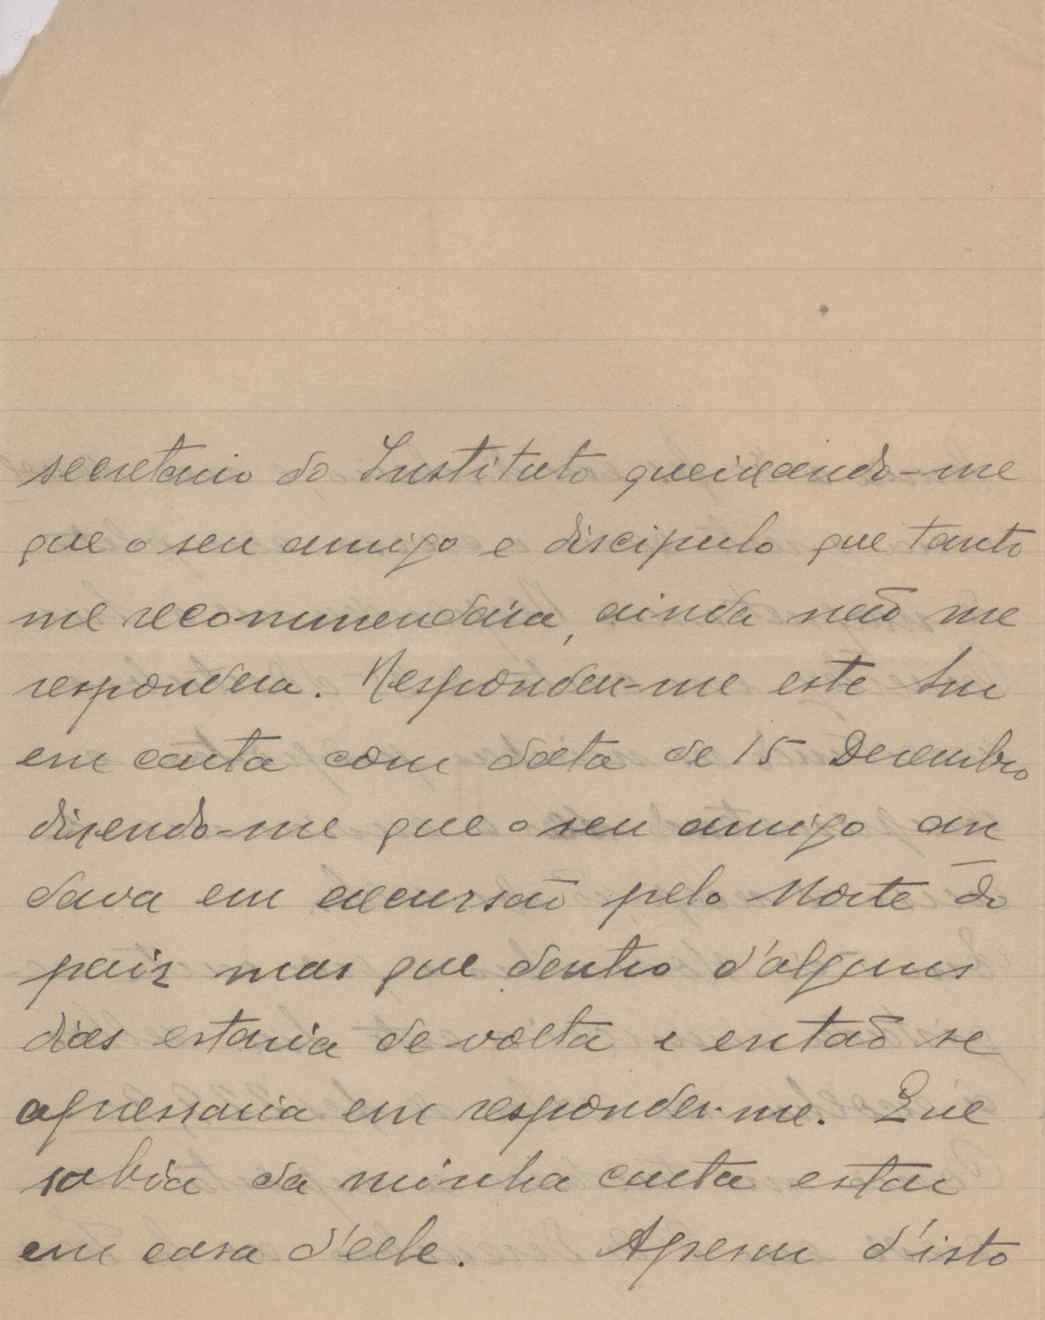 secretario do Instituto queixando-me
que o seu amigo e discipulo que tanto
me recommendára, ainda não me
respondera. Respondeu-me este Snr
em carta com data de 15 Dezembro
dizendo-me que o seu amigo an
dava em excursão pelo Norte do
paiz mas que dentro d'alguns
dias estaria de volta e então se
apressaria em responder-me. Que
sabia da minha carta estar
em casa d'elle. Apesar d'isto